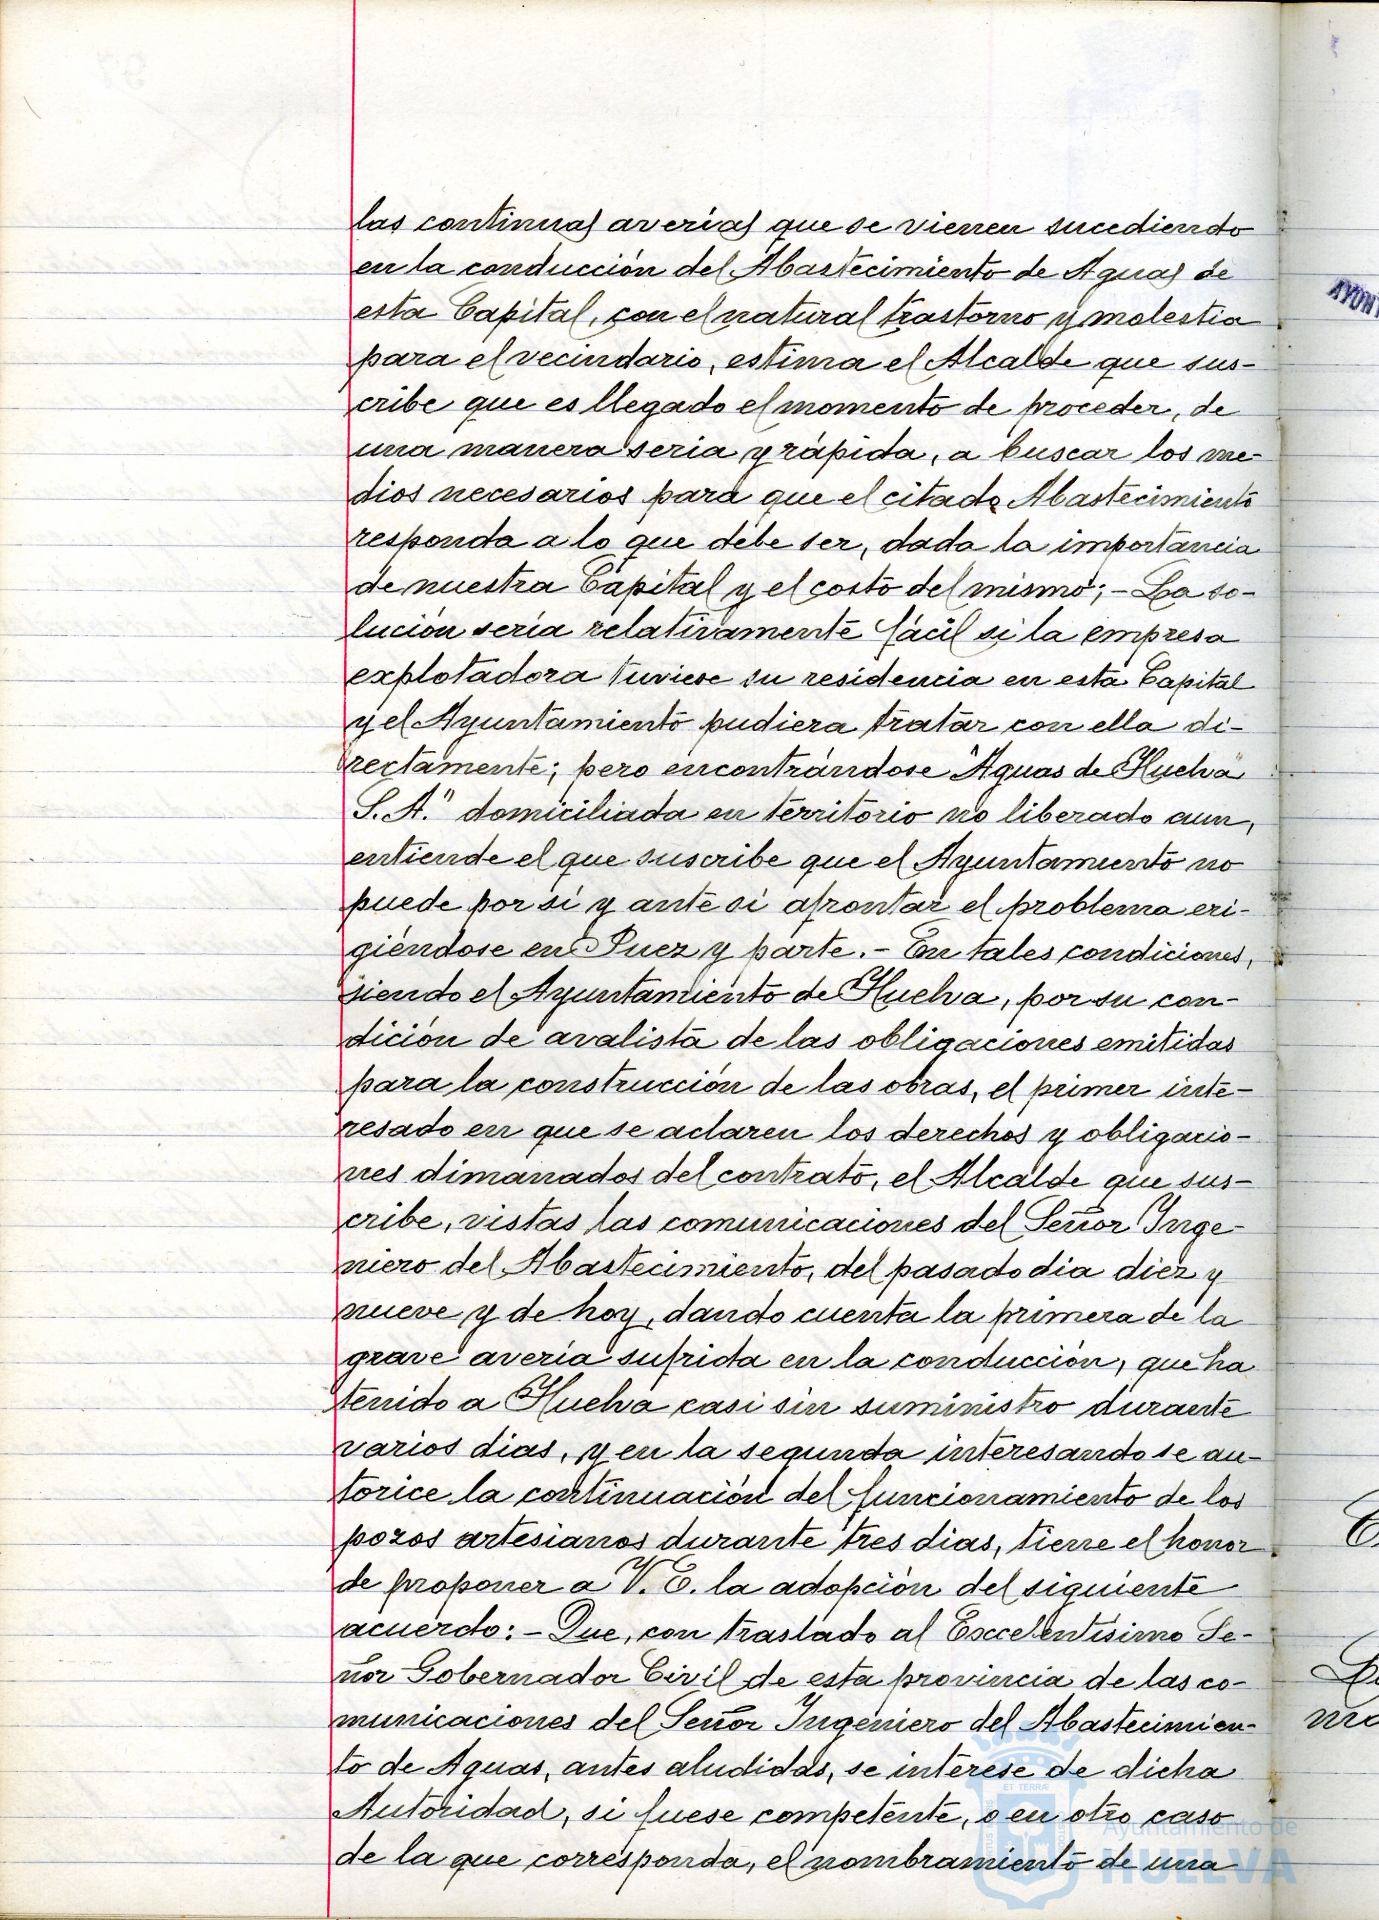 las continuas averías que se vienen sucediendo
en la conducción del Abastecimiento de Aguas de
esta Capital, con el natural trastorno y molestia
para el vecindario, estima el Alcalde que sus-
cribe que es llegado el momento de proceder, de
una manera seria y rápida, a buscar los me-
dios necesarios para que el citado Abastecimiento
responda a lo que debe ser, dada la importancia
de nuestra Capital y el costo del mismo; - La so-
lución sería relativamente fácil si la empresa
explotadora tuviese su residencia en esta Capital
y el Ayuntamiento pudiera tratar con ella di-
rectamente; pero encontrándose "Aguas de Huelva
S.A." domiciliada en territorio no liberado aun,
entiende el que suscribe que el Ayuntamiento no
puede por sí y ante sí afrontar el problema eri-
giéndose en Juez y parte. - En tales condiciones,
siendo el Ayuntamiento de Huelva, por su con-
dición de avalista de las obligaciones emitidas
para la construcción de las obras, el primer inte-
resado en que se aclaren los derechos y obligacio-
nes dimanados del contrato, el Alcalde que sus-
cribe, vistas las comunicaciones del Señor Inge-
niero del Abastecimiento, del pasado dia diez y
nueve y de hoy, dando cuenta la primera de la
grave avería sufrida en la conducción, que ha
tenido a Huelva casi sin suministro durante
varios dias, y en la segunda interesando se au-
torice la continuación del funcionamiento de los
pozos artesianos durante tres dias, tiene el honor
de proponer a V.E. la adopción del siguiente
acuerdo: - Que, con traslado al Excelentísimo Se-
ñor Gobernador Civil de esta provincia de las co-
municaciones del Señor Ingeniero del Abastecimien-
to de Aguas, antes aludidas, se interese de dicha
Autoridad, si fuese competente, o en otro caso
de la que corresponda, el nombramiento de una
Ayuntamiento de
HUELVA